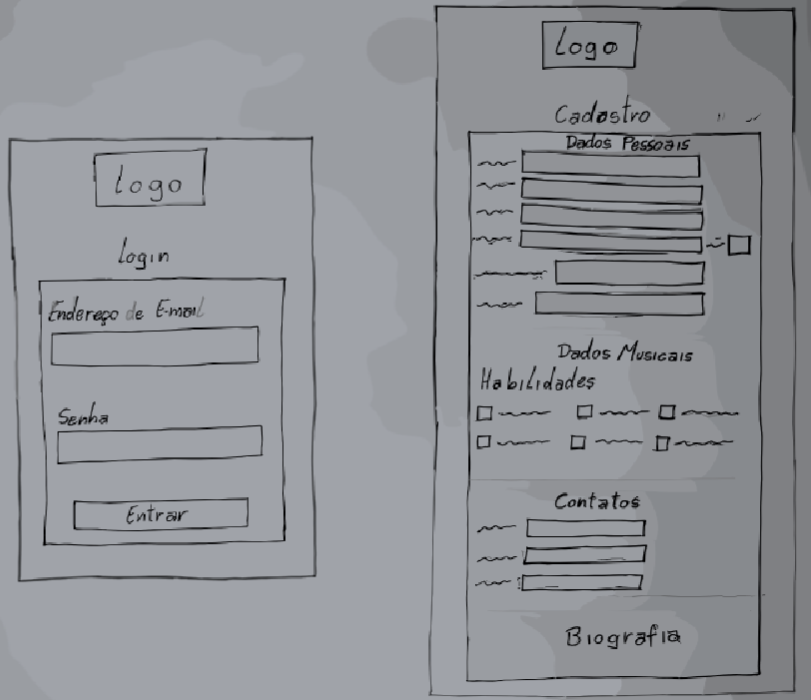 Logo
login
Endereço de E-mail
Senha
Entrar
Logo
Cadastro
Dados Pessoais
Dados Musicais
Habilidades
Contatos
Biografia